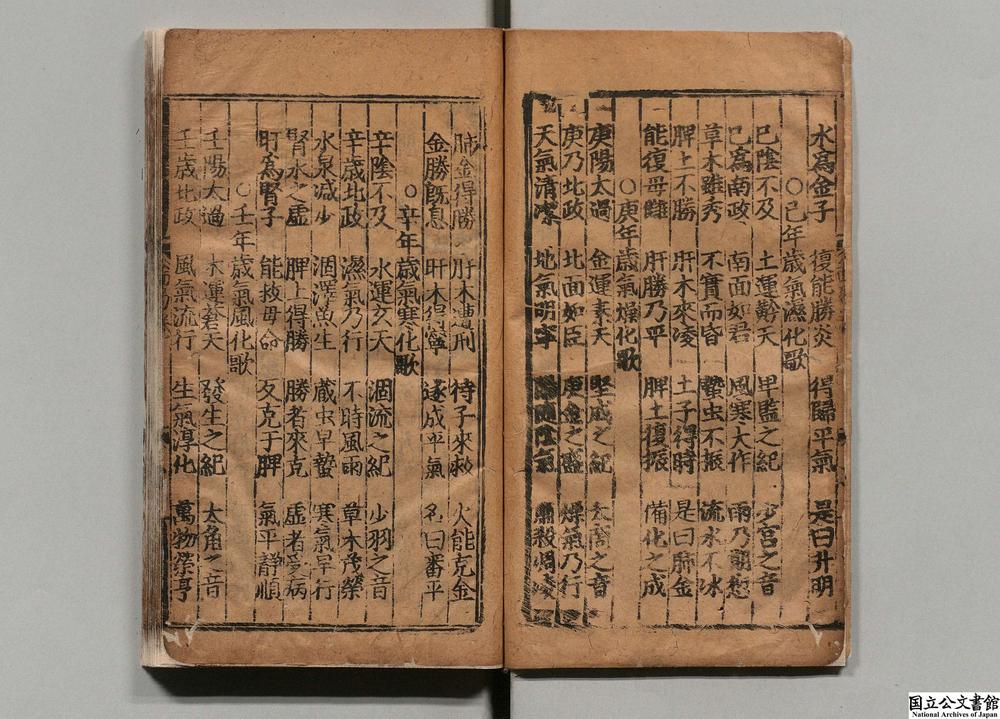 水爲金子 復能勝炎 得歸平氣 是曰升明
○己年歲氣濕化歌
己陰不及 土運黅天 卑監之紀 少宮之音
己爲南政 南面如君 風寒大作 雨乃
草木雖秀 不實而昏 蟄虫不振 流水不冰
脾土不勝 肝木來凌 土子得時 是曰肺金
能復母讎 肝勝乃平 脾土復振 備化之成
○庚年歲氣燥化歌
庚陽太過 金運素天 堅成之紀 太商之音
庚乃北政 北面如臣 庚金之盛 燥氣乃行
天氣清潔 地氣明寧 陰氣 肅殺凋凌
肺金得勝 肝木遭刑 待子來救 火能克金
金勝旣息 肝木得寧 遂成平氣 名曰審平
○辛年歲氣寒化歌
辛陰不及 水運玄天 涸流之紀 少羽之音
辛歲北政 濕氣乃行 不時風雨 草木茂榮
水泉减少 涸澤魚生 蔵虫早蟄 寒氣早行
腎水之虛 脾土得勝 勝者來克 虛者受病
肝爲腎子 能救母 克于脾 氣平靜順
○壬年歲氣風化歌
壬陽太過 木運蒼天 發生之紀 太角之音
壬歲北政 風氣流行 生氣淳化 萬物榮亨
国立公文書館
National Archives of Japan